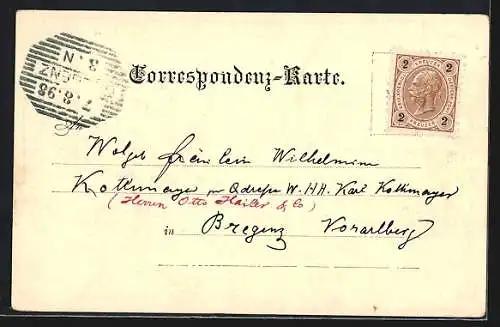 3. N
BREGENZ
7.8.98
Correspondenz-Karte.
2 KREUZER 2
2 KREUZER 2
An
Wolgeb Fräulein Wilhelmine
Kottmayer pr Adresse W. HH. Karl Kottmayer
(Herren Otto Hailer & Co)
in Bregenz Vorarlberg